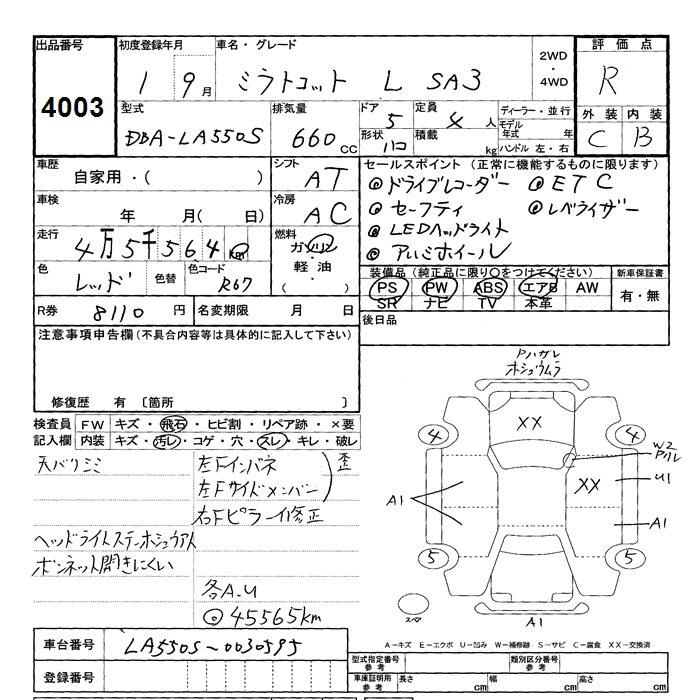 出品番号 初度登録年月 車名・グレード 2WD・4WD 評価点
4003 1 9月 ミラトコット L SA3 R
型式 排気量 ドア 定員 ディーラー・並行 外装 内装
DBA-LA550S 660cc 5 4人 モデル年式 年 C B
形状 ハコ 積載 kg ハンドル 左・右
車歴 シフト セールスポイント(正常に機能するものに限ります)
自家用・( ) AT ◎ドライブレコーダー ◎ETC
車検 冷房 ◎セーフティ ◎レベライザー
年 月( 日) AC ◎LEDヘッドライト
走行 燃料 ◎アルミホイール
4万5千564km ガソリン・軽油・( )
色 色替 色コード 装備品(純正品に限り○をつけてください) 新車保証書
レッド R67 PS PW ABS エアB AW 有・無
SR ナビ TV 本革
R券 8110円 名変期限 月 日 後日品
注意事項申告欄(不具合内容等は具体的に記入して下さい)
修復歴 有 〔箇所 〕
検査員 FW キズ・飛石・ヒビ割・リペア跡・×要
記入欄 内装 キズ・汚レ・コゲ・穴・スレ・キレ・破レ
天バリシミ 左Fインパネ
左Fサイドメンバー) 歪
右Fピラー修正
ヘッドライトステーホシュウアト
ボンネット開きにくい
各A.U
◎45565km
Pハガレ
ホシュウムラ
XX
4 4
W2
Pハレ
A1 XX U1
A1
5 5
スペア A1
A-キズ E-エクボ U-凹み W-補修跡 S-サビ C-腐食 XX-交換済
車台番号 LA550S-0030595
登録番号
型式指定番号 参考 類別区分番号 参考
車庫証明用 参考 長さ cm 幅 cm 高さ cm